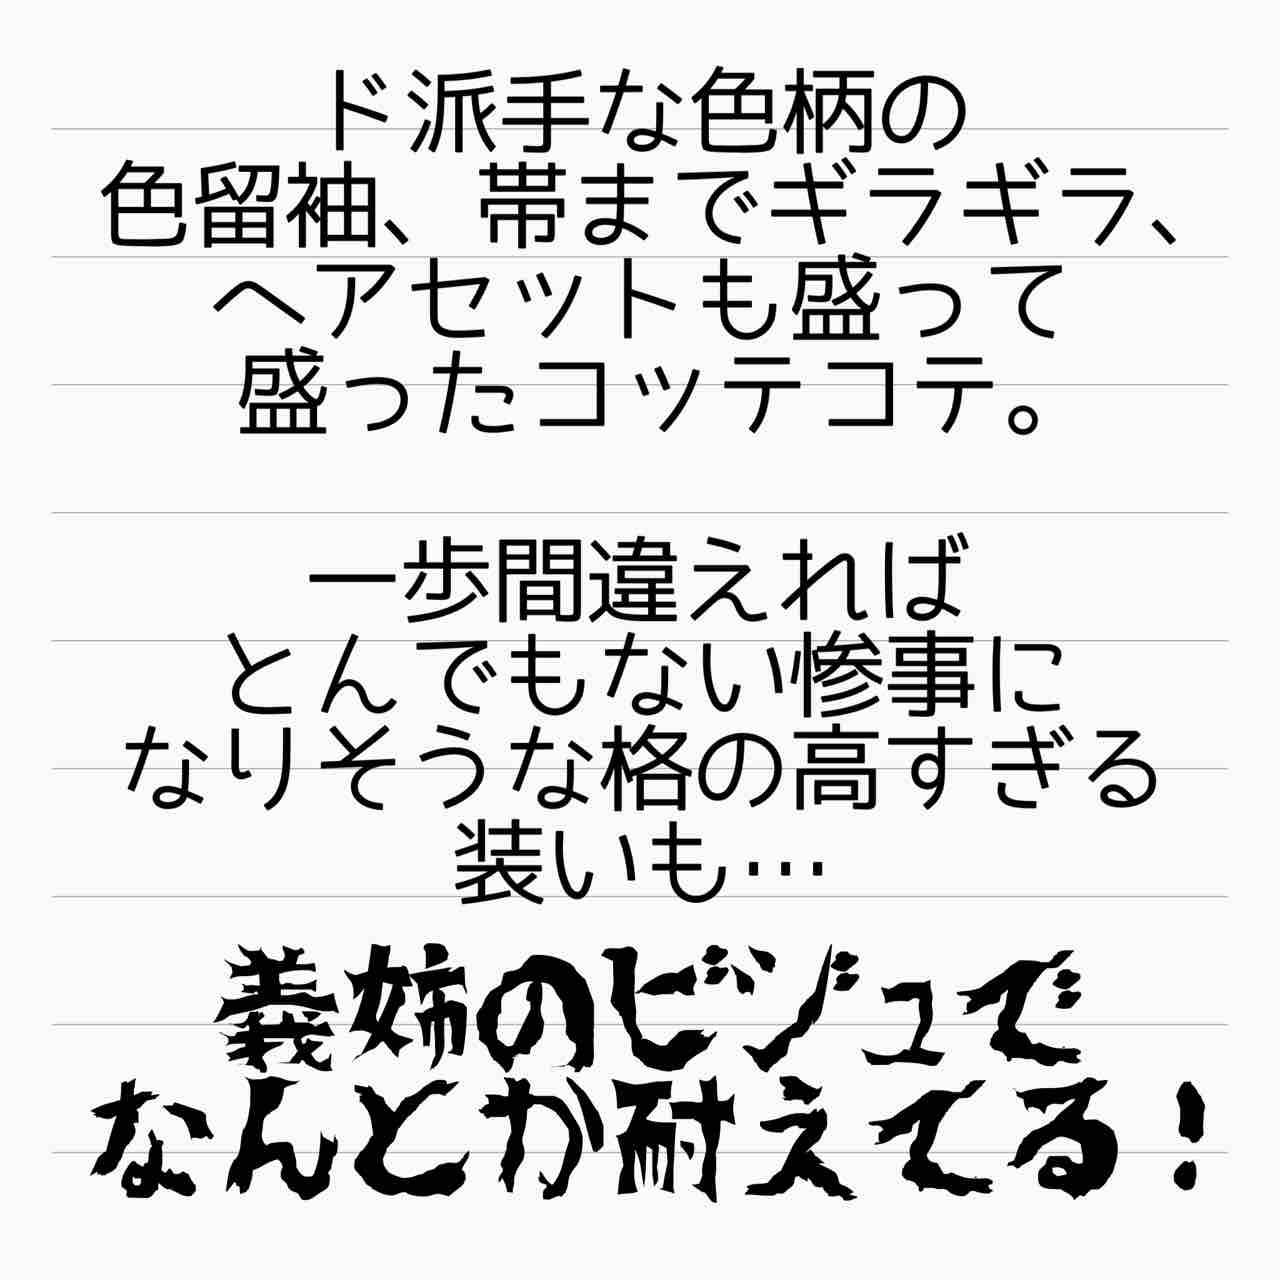 ド派手な色柄の
色留袖、帯までギラギラ、
ヘアセットも盛って
盛ったコッテコテ。
一歩間違えれば
とんでもない惨事に
なりそうな格の高すぎる
装いも…
義姉のビジュで
なんとか耐えてる！